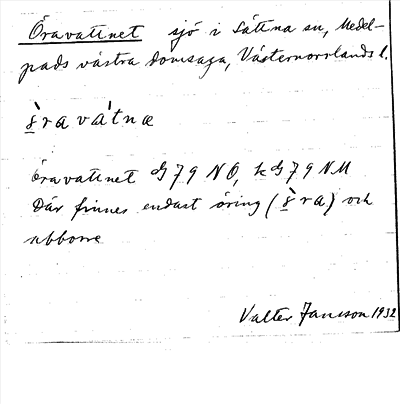 Öravattnet sjö i Sättna sn, Medel-
pads västra domsaga, Västernorrlands l.
ö̀ravát́næ
Öravattnet G79 NO, k G79 NM
Där finnes endast öring (ö̀ra) och
abborre
Valter Jansson 1932